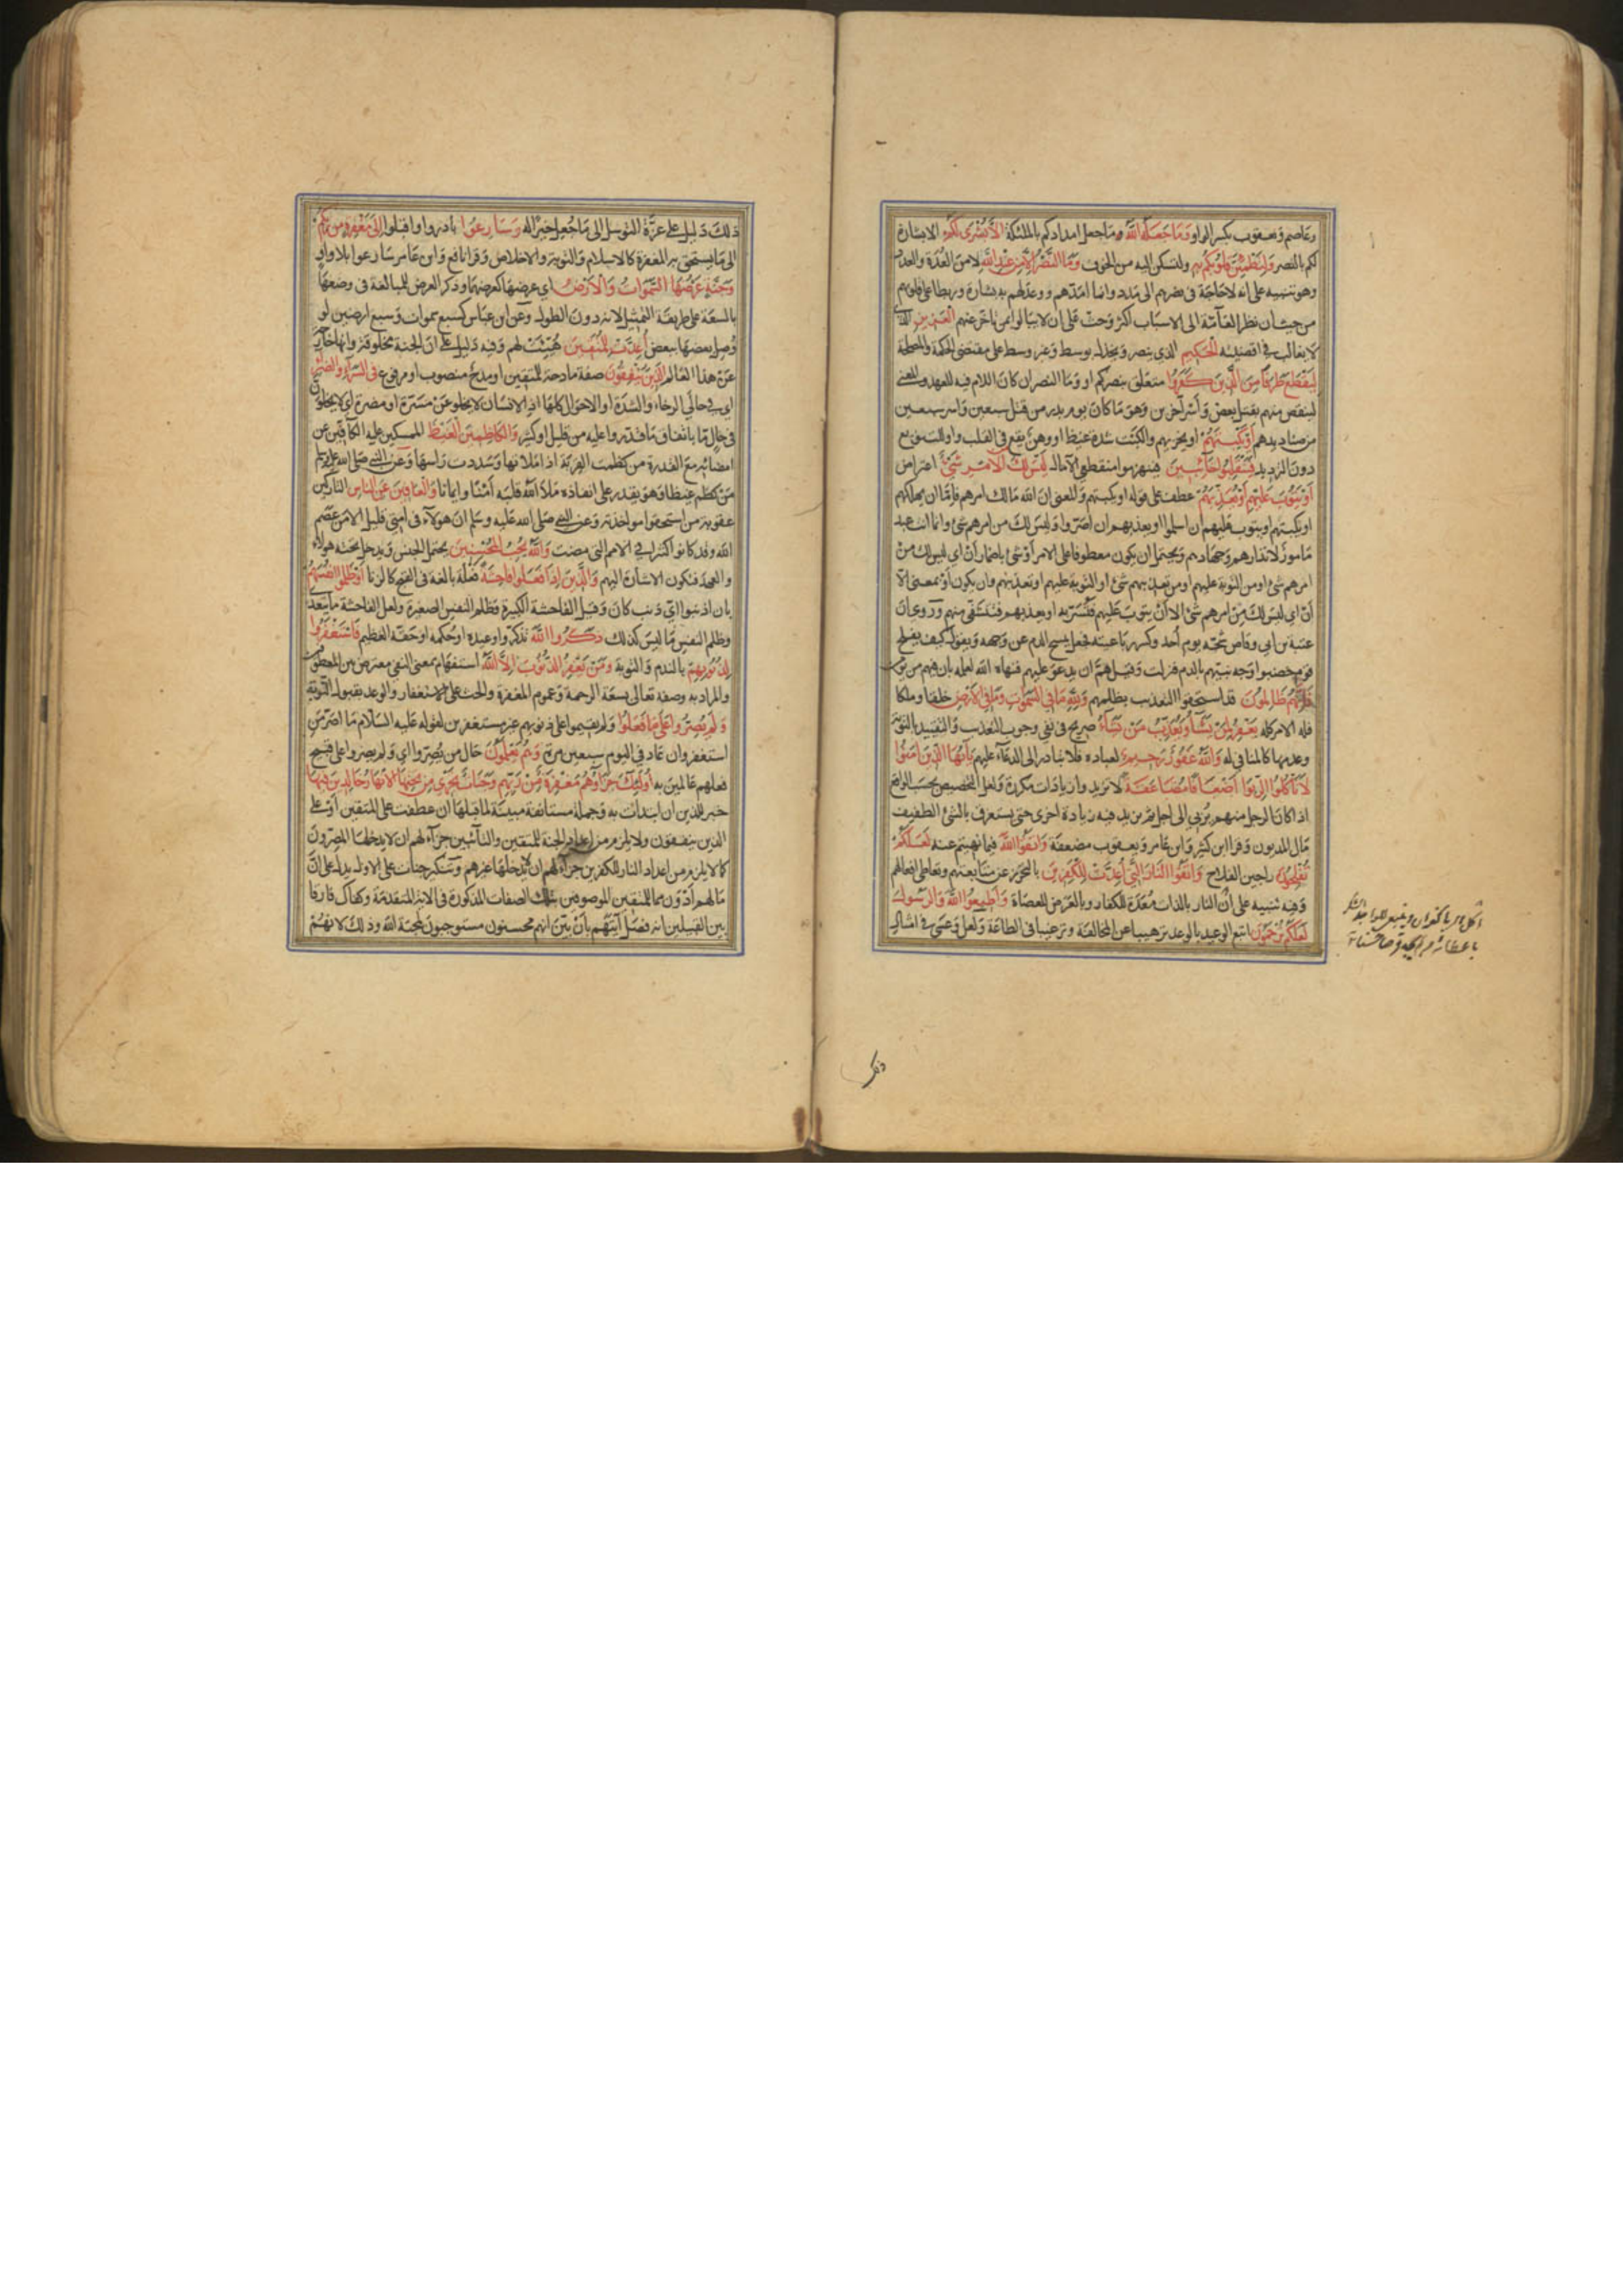 وعاصم ويعقوب بكسر الواو وَمَا جَعَلَهُ اللَّهُ وما جعل امدادكم بالملئكة الَّا بُشْرَى لَكُمْ الا بشارة
لكم بالنصر وَلِتَطْمَئِنَّ قُلُوبُكُمْ بِهِ ولتسكن اليه من الخوف وَمَا النَّصْرُ اِلَّا مِنْ عِنْدِ اللَّهِ لا من العُدّة والعدد
وهو تنبيه على انه لا حاجة في نصرهم الى مدد وانما امدّهم ووعد لهم به بشارة وربطا على قلوبهم
من حيث ان نظر العامّة الى الاسباب اكثر وحثّ على ان لا يبالوا بمن تاخر عنهم العَزِيزِ الذي
لا يغالب في اقضيته الْحَكِيمِ الذي ينصر ويخذل بوسط وغير وسط على مقتضى الحكمة والمصلحة
لِيَقْطَعَ طَرَفًا مِنَ الَّذِينَ كَفَرُوا متعلق بنصركم او وَمَا النصر ان كان اللام فيه للعهد والمعنى
لينقص منهم بقتل بعض وأسر آخرين وهو ما كان يوم بدر من قتل سبعين واسر سبعين
من صناديدهم أَوْ يَكْبِتَهُمْ او يخزيهم والكبت شدة غيظ او وهن يقع في القلب واو للتنويع
دون الترديد فَيَنْقَلِبُوا خَائِبِينَ فينهزموا منقطعي الآمال لَيْسَ لَكَ مِنَ الْاَمْرِ شَيْءٌ اعتراض
أَوْ يَتُوبَ عَلَيْهِمْ أَوْ يُعَذِّبَهُمْ عطف على قوله او يكبتهم والمعنى ان الله مالك امرهم فاِمّا ان يهلكهم
او يكبتهم او يتوب عليهم ان اسلموا او يعذبهم ان اصرّوا وليس لك من امرهم شئ وانما انت عبد
مامور لانذارهم وجهادهم ويحتمل ان يكون معطوفا على الامر أو شئ باضمار أنْ اي ليس لك من
امرهم شئ او من التوبة عليهم او من تعذيبهم شئ او التوبة عليهم او تعذيبهم وان يكون أو بمعنى الّا
أنْ اي ليس لك من امرهم شئ الا أنْ يتوب عليهم فتُسَرّ به او يعذبهم فتتشفى منهم وروي ان
عتبة بن ابي وقاص شجّه يوم أحد وكسر رباعيته فجعل يمسح الدم عن وجهه ويقول كيف يفلح
قوم خضبوا وجه نبيهم بالدم فنزلت وقيل همّ ان يدعو عليهم فنهاه الله لعلمه بان فيهم من يؤمن
فَاِنَّهُمْ ظَالِمُونَ قد استحقوا التعذيب بظلمهم وَلِلَّهِ مَا فِي السَّمَوَاتِ وَمَا فِي الْاَرْضِ خلقا وملكا
فله الامر كله يَغْفِرُ لِمَنْ يَشَآءُ وَيُعَذِّبُ مَنْ يَشَآءُ صريح في نفي وجوب التعذيب والتقييد بالتوبة
وعدمها كالمنافي له وَاللَّهُ غَفُورٌ رَحِيمٌ لعباده فلا تبادر الى الدعاء عليهم يَاَيُّهَا الَّذِينَ آمَنُوا
لَا تَأْكُلُوا الرِّبَوا اَضْعَافًا مُضَاعَفَةً لا تزيدوا زيادات مكررة ولعل التخصيص بحسب الواقع
اذ كان الرجل منهم يُربي الى اجل ثم يزيد فيه زيادة اخرى حتى يستغرق بالشئ الطفيف
مال المديون وقرا ابن كثير وابن عامر ويعقوب مضعفة وَاتَّقُوا اللَّهَ فيما نهيتم عنه لَعَلَّكُمْ
تُفْلِحُونَ راجين الفلاح وَاتَّقُوا النَّارَ الَّتِي أُعِدَّتْ لِلْكَفِرِينَ بالتحرّز عن متابعتهم وتعاطي افعالهم
وفيه تنبيه على أنّ النار بالذات مُعَدّة للكفار وبالعرض للعصاة وَاَطِيعُوا اللَّهَ وَالرَّسُولَ
لَعَلَّكُمْ تُرْحَمُونَ اتبع الوعيد بالوعد ترهيبا عن المخالفة وترغيبا في الطاعة ولعل وعسى في امثال
ذلك
ذلك دليل على عزّة التوسل الى ما جُعل خبرًا له وَسَارِعُوا بادروا واقبلوا اِلَى مَغْفِرَةٍ مِنْ رَبِّكُمْ
الى ما يستحق به المغفرة كالاسلام والتوبة والاخلاص وقرا نافع وابن عامر سارعوا بلا واو
وَجَنَّةٍ عَرْضُهَا السَّمَوَاتُ وَالْاَرْضُ اي عرضها كعرضهما وذكر العرض للمبالغة في وصفها
بالسعة على طريقة التمثيل لانه دون الطول وعن ابن عباس كسبع سموات وسبع ارضين لو
وُصل بعضها ببعض أُعِدَّتْ لِلْمُتَّقِينَ هُيّئت لهم وفيه دليل على ان الجنة مخلوقة وانها خارجة
عن هذا العالم الَّذِينَ يُنْفِقُونَ صفة مادحة للمتقين او مدح منصوب او مرفوع فِي السَّرَّآءِ وَالضَّرَّآءِ
اي في حالتي الرخاء والشدة او الاحوال كلها اذ الانسان لا يخلو عن مسرّة او مضرة اي لا يخلون
في حال مّا بانفاق ما قدروا عليه من قليل او كثير وَالْكَاظِمِينَ الْغَيْظَ الممسكين عليه الكافين عن
امضائه مع القدرة من كظمت القربة اذا ملاتها وشددت راسها وعن النبي صلى الله عليه وسلم
مَن كظم غيظا وهو يقدر على انفاذه ملأ الله قلبه أمنا وايمانا وَالْعَافِينَ عَنِ النَّاسِ التاركين
عقوبة من استحقوا مواخذته وعن النبي صلى الله عليه وسلم ان هولآء في امتي قليل الا من عصم
الله وقد كانوا كثيرا في الامم التي مضت وَاللَّهُ يُحِبُّ الْمُحْسِنِينَ يحتمل الجنس ويدخل تحته هولاء
والعهد فتكون الاشارة اليهم وَالَّذِينَ اِذَا فَعَلُوا فَاحِشَةً فعلة بالغة في القبح كالزنا أَوْ ظَلَمُوا اَنْفُسَهُمْ
بان اذنبوا ايّ ذنب كان وقيل الفاحشة الكبيرة وظلم النفس الصغيرة ولعل الفاحشة ما يتعدى
وظلم النفس ما ليس كذلك ذَكَرُوا اللَّهَ تذكّروا وعيده او حكمه او حقه العظيم فَاسْتَغْفَرُوا
لِذُنُوبِهِمْ بالندم والتوبة وَمَنْ يَغْفِرُ الذُّنُوبَ اِلَّا اللَّهُ استفهام بمعنى النفي معترض بين المعطوفين
والمراد به وصفه تعالى بسعة الرحمة وعموم المغفرة والحث على الاستغفار والوعد بقبول التوبة
وَلَمْ يُصِرُّوا عَلَى مَا فَعَلُوا ولم يقيموا على ذنوبهم غير مستغفرين لقوله عليه السلام ما اصرّ من
استغفر وان عاد في اليوم سبعين مرّة وَهُمْ يَعْلَمُونَ حال من يُصِرّوا اي ولم يصروا على قبيح
فعلهم عالمين به أُولَئِكَ جَزَاؤُهُمْ مَغْفِرَةٌ مِنْ رَبِّهِمْ وَجَنَّاتٌ تَجْرِي مِنْ تَحْتِهَا الْاَنْهَارُ خَالِدِينَ فِيهَا
خبر للذين ان ابتدأت به وجملة مستانفة مبينة لما قبلها ان عطفت على المتقين أو على
الذين ينفقون ولا يلزم من اعداد الجنة للمتقين والتائبين جزآء لهم ان لا يدخلها المصرّون
كما لا يلزم من اعداد النار للكفرين جزآء لهم ان لا يدخلها غيرهم وتنكير جنات على الاول يدل على انّ
ما لهم أدون مما للمتقين الموصوفين بتلك الصفات المذكورة في الآية المتقدمة وكفاك فارقا
بين القبيلين انه فصّل آيتهم بأن بيّن انهم محسنون مستوجبون لمحبّة الله وذلك لانهم